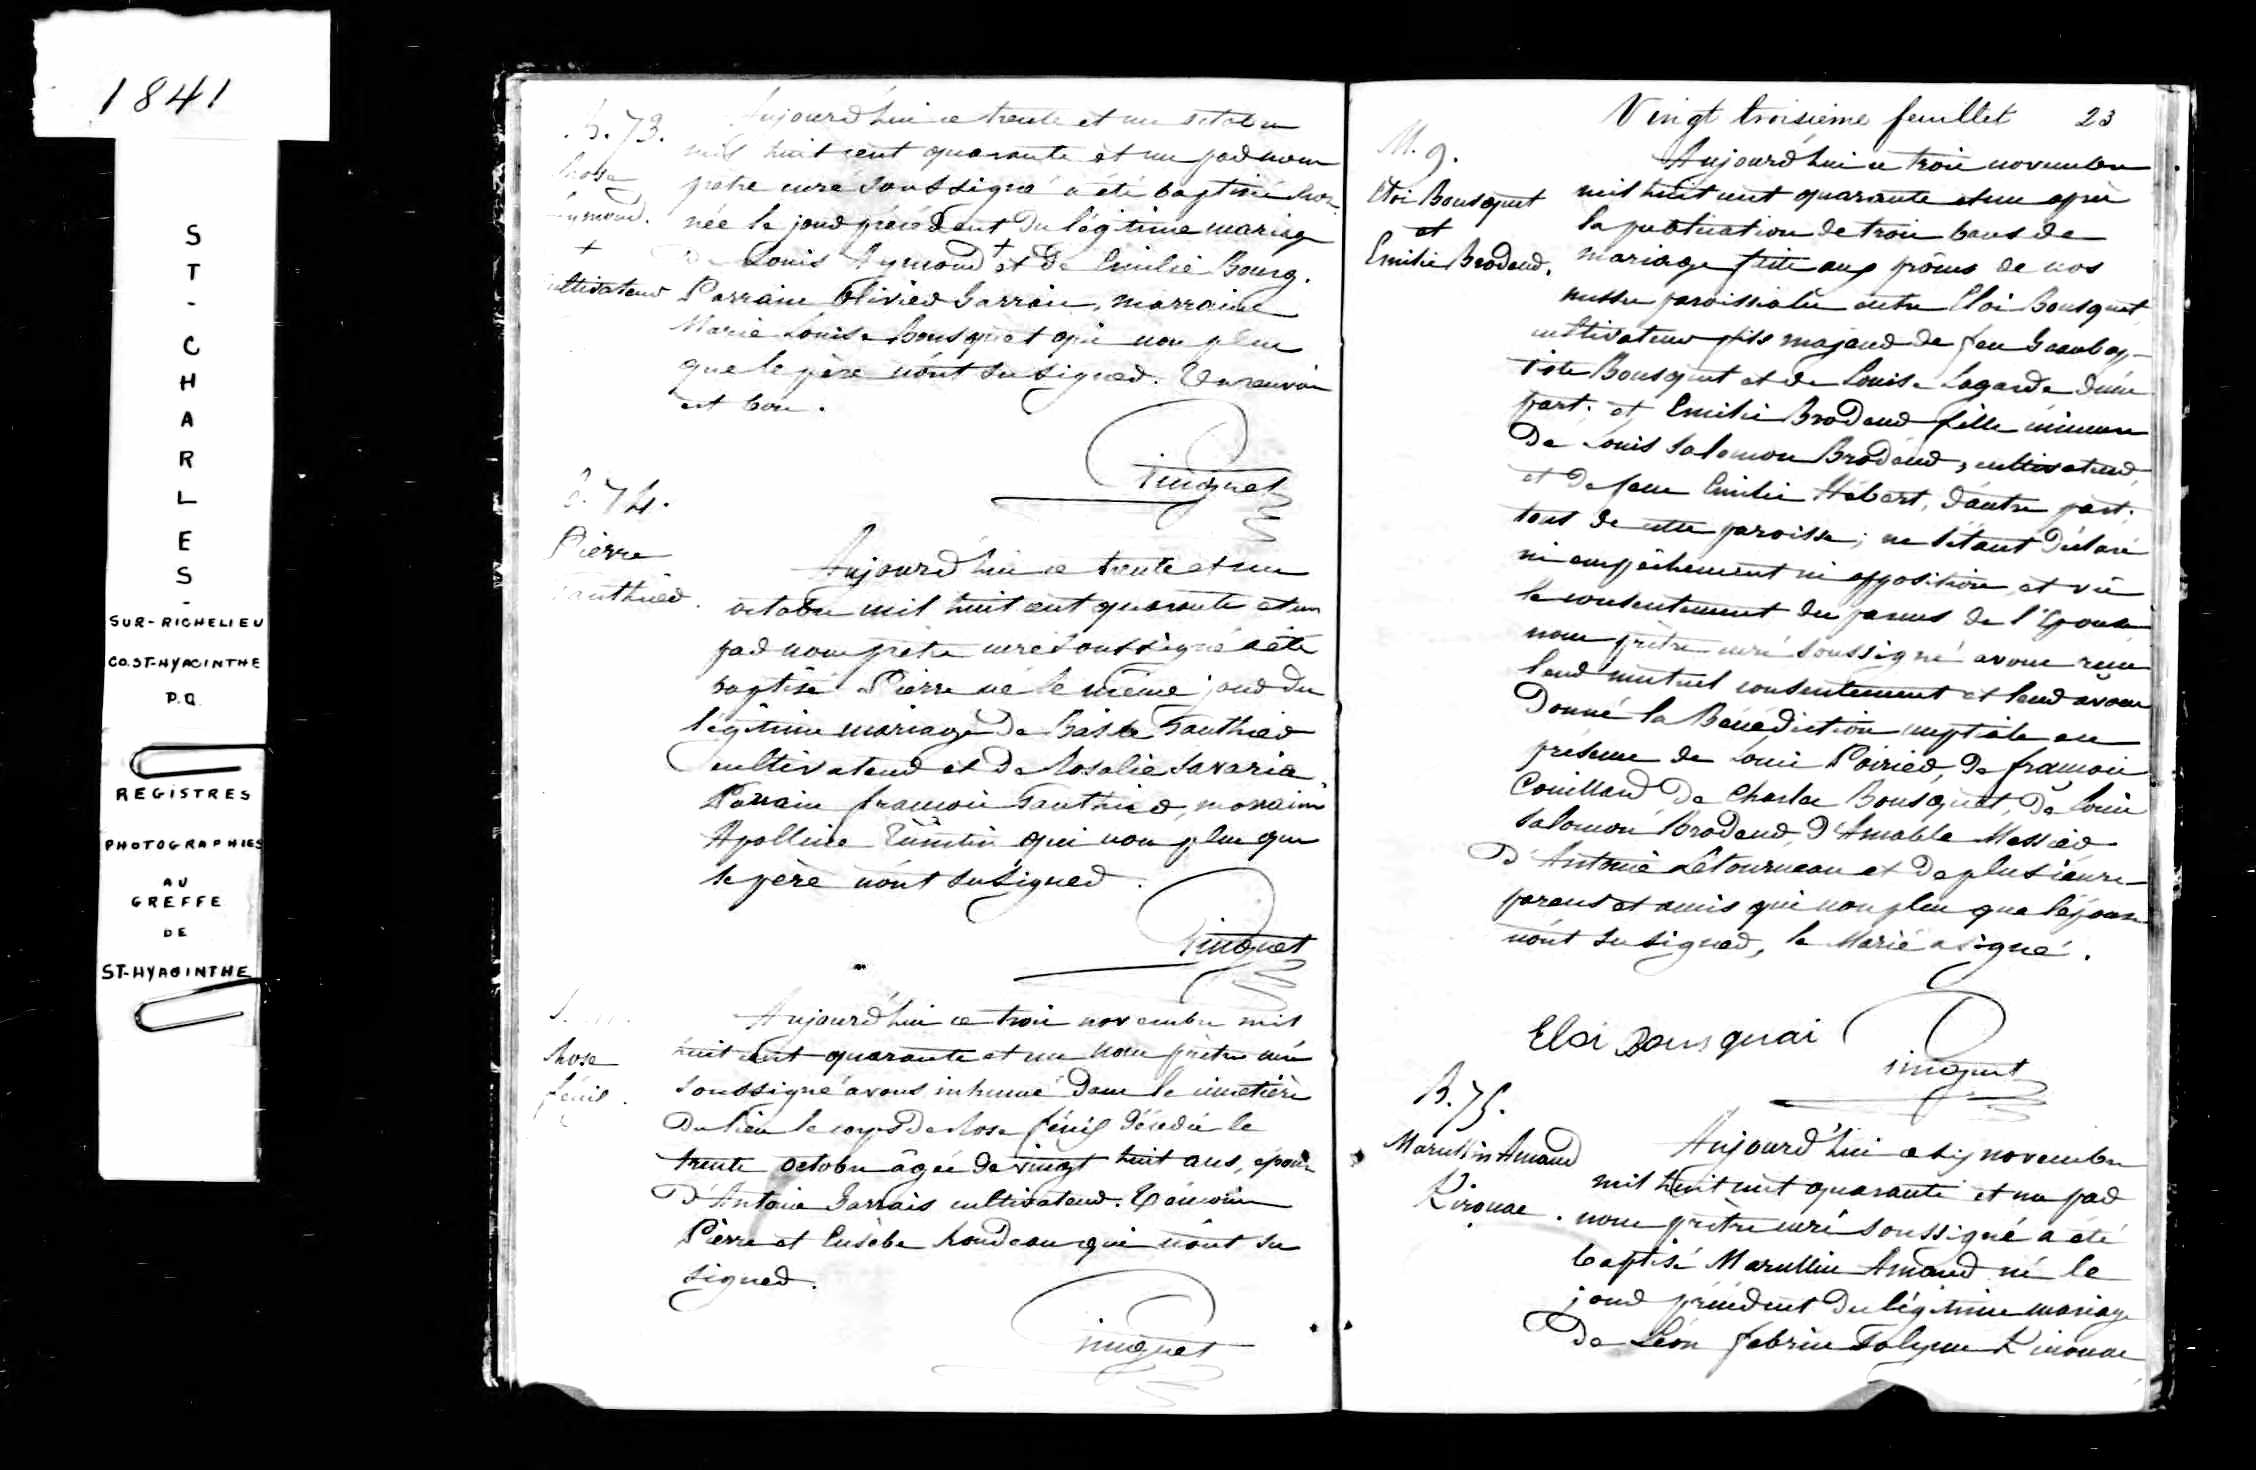 1841
ST-CHARLES-
SUR-RICHELIEU
CO.ST-HYACINTHE
P.Q.
REGISTRES
PHOTOGRAPHIES
AU
GREFFE
DE
ST-HYACINTHE
B.73.
Rose
Aymond.
+
cultivateur
Aujourd'hui ce trente et un octobre
mil huit cent quarante et un par nous
prêtre curé soussigné a été baptisé
née le jour précédent du légitime mariage
de Louis Aymond + et de Emilie Bourg.
Parrain Olivier Jarrais, marraine
Marie Louise Bousquet qui non plus
que le père n'ont su signer. Un renvoi
est bon.
Pinquet
B.74.
Pierre
Gauthier.
Aujourd'hui ce trente et un
octobre mil huit cent quarante et un
par nous prêtre curé soussigné a été
baptisé Pierre né le même jour du
légitime mariage de Basile Gauthier
cultivateur et de Rosalie Savaria.
Parrain françois Gauthier, marraine
Apolline qui non plus que
le père n'ont su signer.
Pinquet
S.
Rose
fénix.
Aujourd'hui ce trois novembre mil
huit cent quarante et un nous prêtre curé
soussigné avons inhumé dans le cimetière
du lieu le corps de Rose fénix décédée le
trente octobre âgée de vingt huit ans, épouse
d'Antoine Jarrais cultivateur. Témoins
Pierre et Eusèbe Rondeau qui n'ont su
signer.
Pinquet
Vingt troisième feuillet 23
M.9.
Eloi Bousquet
et
Emilie Brodeur.
Aujourd'hui ce trois novembre
mil huit cent quarante et un après
la publication de trois bans de
mariage faite aux prônes de nos
messes paroissiales entre Eloi Bousquet
cultivateur fils majeur de feu Jeanbap-
tiste Bousquet et de Louise Lagarde d'une
part. et Emilie Brodeur fille mineure
de Louis Salomon Brodeur, cultivateur,
et de feue Emilie Hébert, d'autre part.
tous de cette paroisse; ne s'étant déclaré
ni empêchement ni opposition, et vû
le consentement des parens de l'Epouse
nous prêtre curé soussigné avons reçu
leur mutuel consentement et leur avons
donné la Bénédiction nuptiale en
présence de Louis Poirier, de françois
Couillard, de Charles Bousquet, de Louis
Salomon Brodeur, d'Amable Messier
d'Antoine Létourneau et de plusieurs
parens et amis qui non plus que l'épouse
n'ont su signer, le Marié a signé.
Eloi Bousquai
Pinquet
B.75.
Marcellin Amand
Kirouac.
Aujourd'hui ce six novembre
mil huit cent quarante et un par
nous prêtre curé soussigné a été
baptisé Marcellin Amand né le
jour précédent du légitime mariage
de Léon fabrice Kirouac